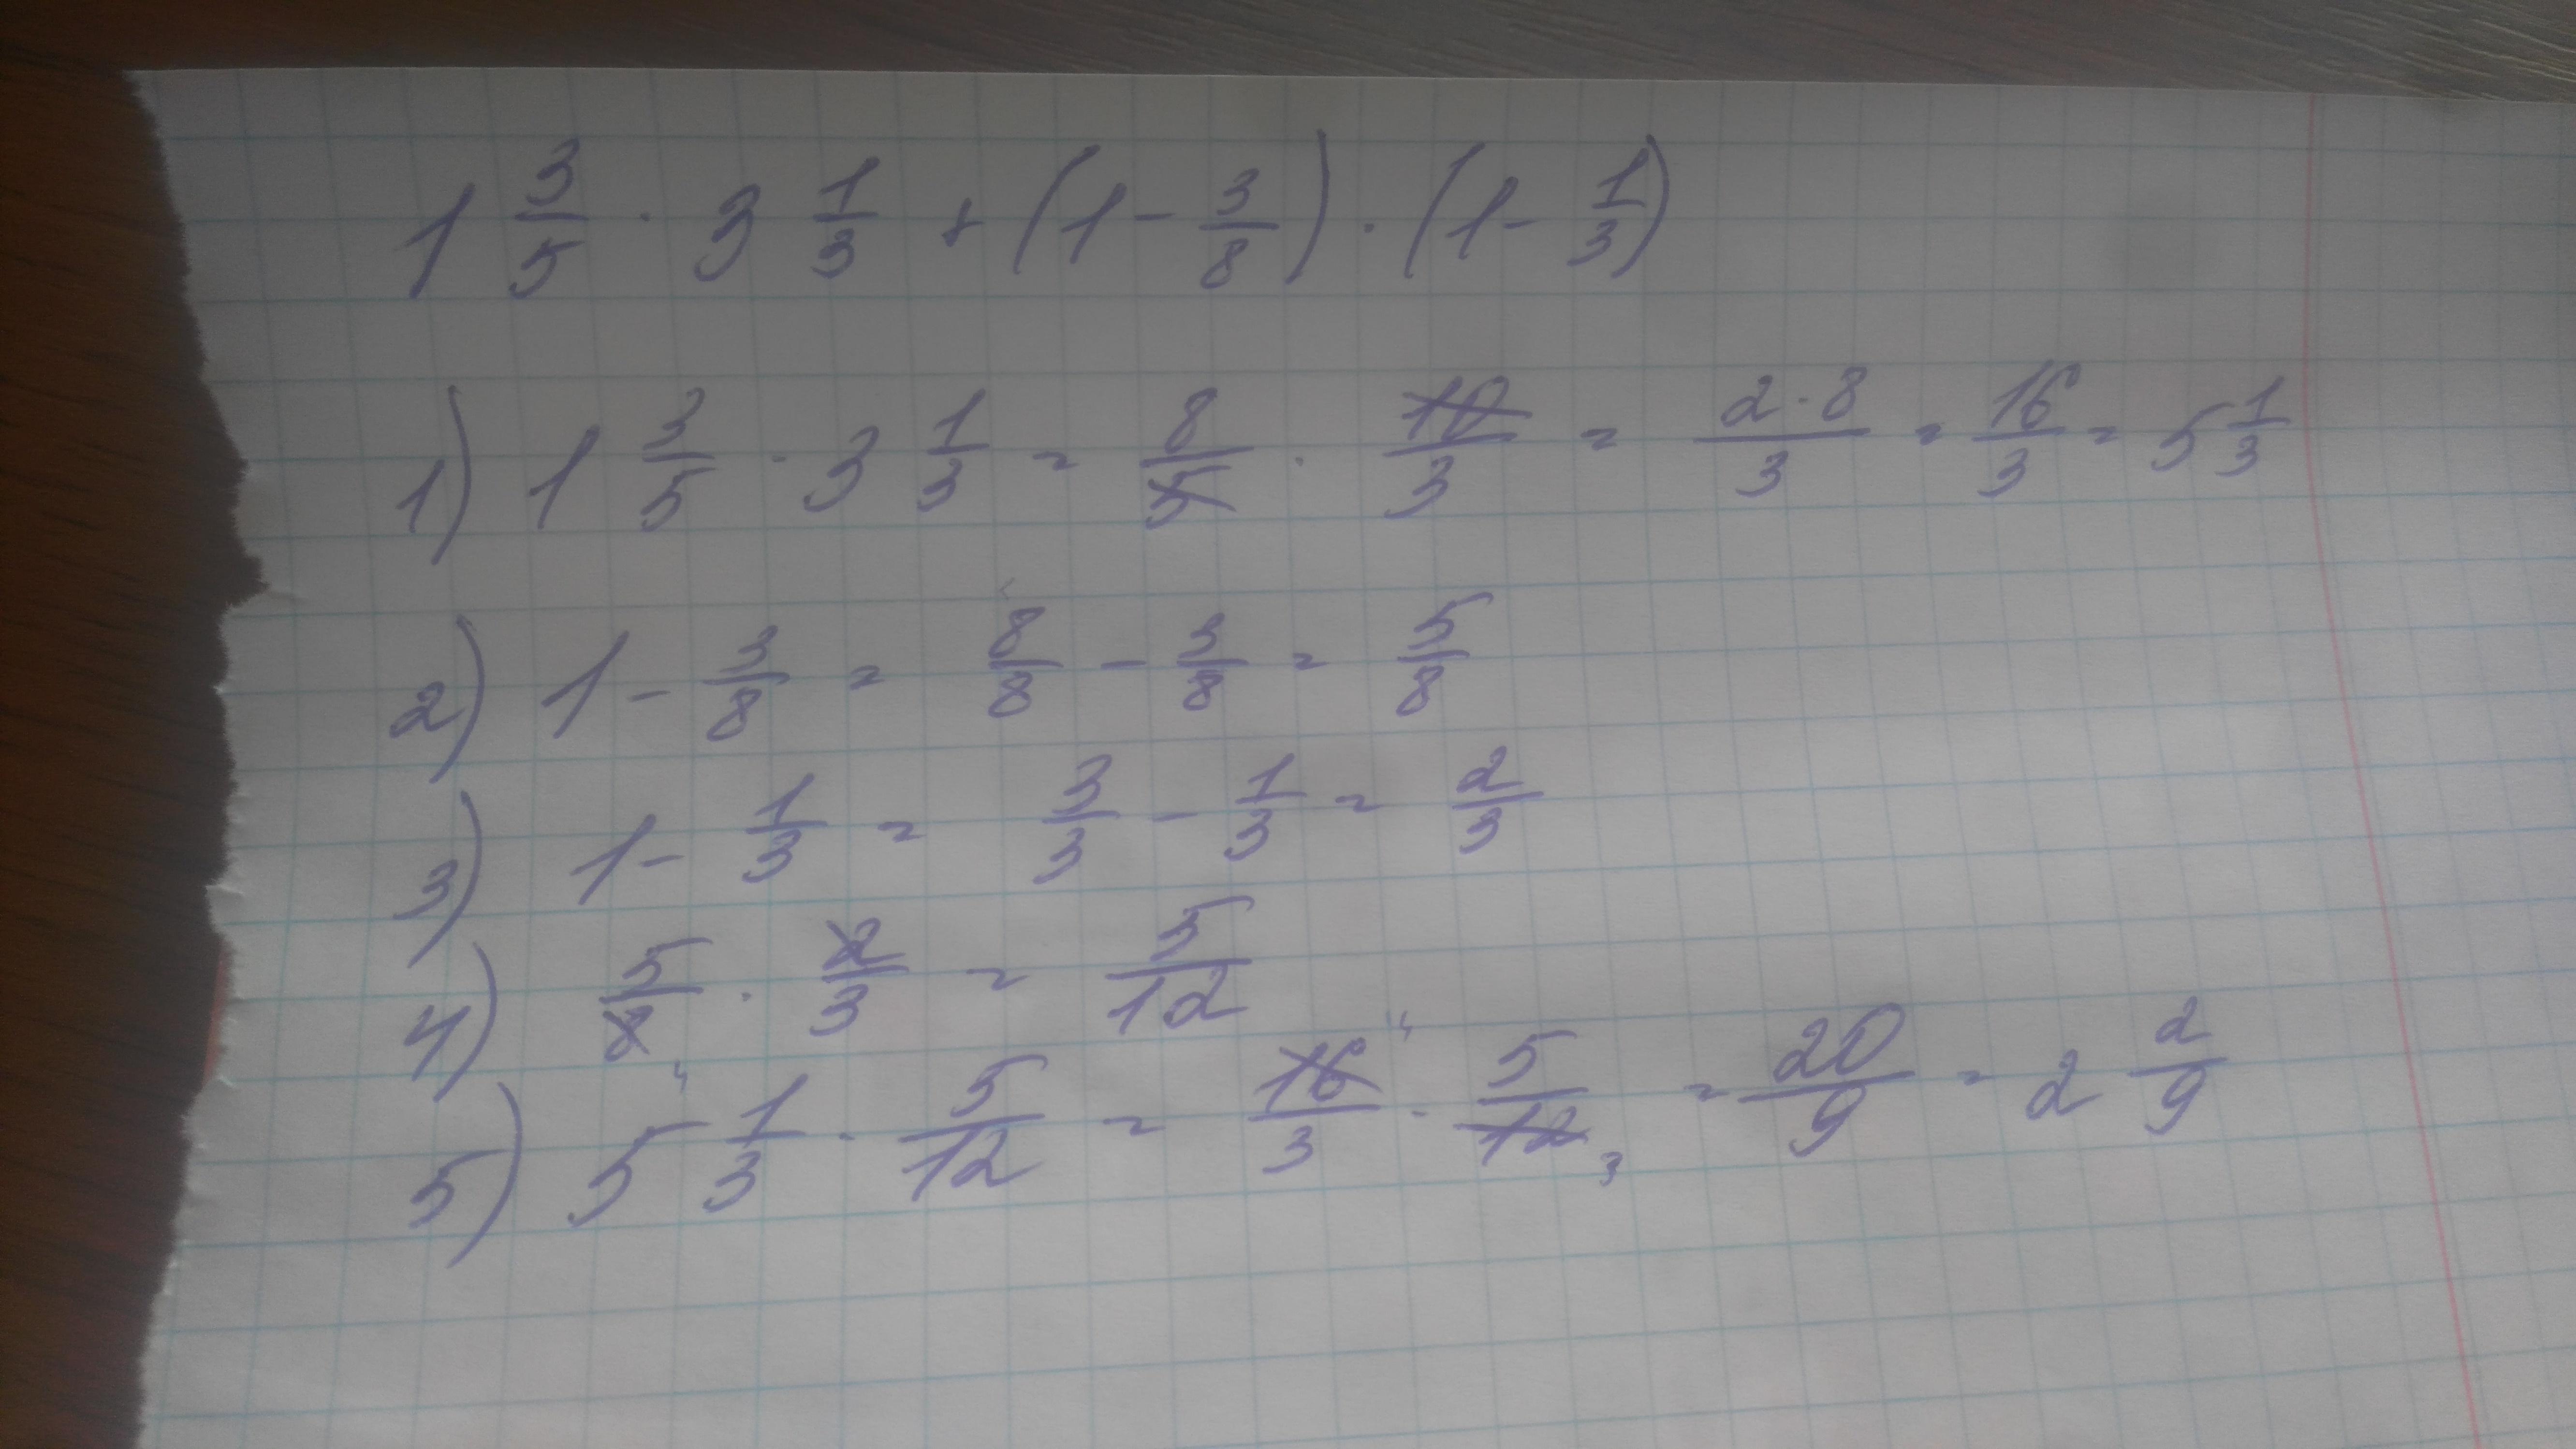 1 3/5 · 3 1/3 + (1 - 3/8) · (1 - 1/3)
1) 1 3/5 · 3 1/3 = 8/5 · 10/3 = 2·8/3 = 16/3 = 5 1/3
2) 1 - 3/8 = 8/8 - 3/8 = 5/8
3) 1 - 1/3 = 3/3 - 1/3 = 2/3
4) 5/8 · 2/3 = 5/12
5) 5 1/3 · 5/12 = 16/3 · 5/12 3 = 20/9 = 2 2/9